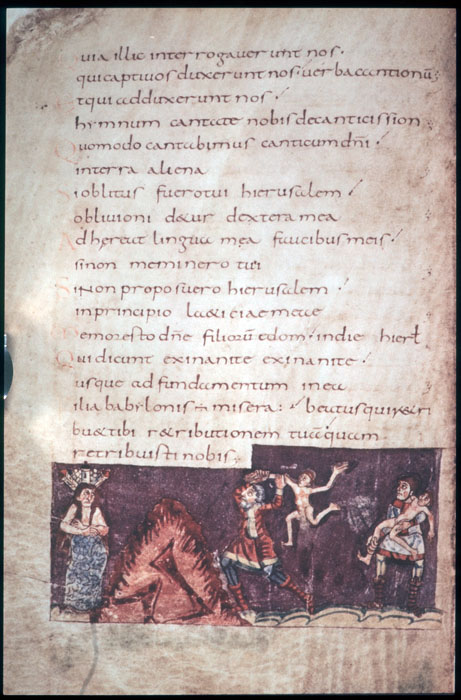 uia illic interrogauerunt nos·
qui captiuos duxerunt nos· uerba cantionū
t qui adduxerunt nos·
hymnum cantate nobis de canticis sion
Quomodo cantabimus canticum dn̄i·
in terra aliena
Si oblitus fuero tui hierusalem·
obliuioni d&ur dextera mea
Adhereat lingua mea faucibus meis·
si non meminero tui
Si non proposuero hierusalem·
in principio la&iciae meae
Memor esto dn̄e filiorū edom· in die hierł
Qui dicunt exinanite exinanite·
usque ad fundamentum in ea
ilia babylonis misera: beatus qui r&ri
bu& tibi r&ributionem tuā quam
retribuisti nobis·